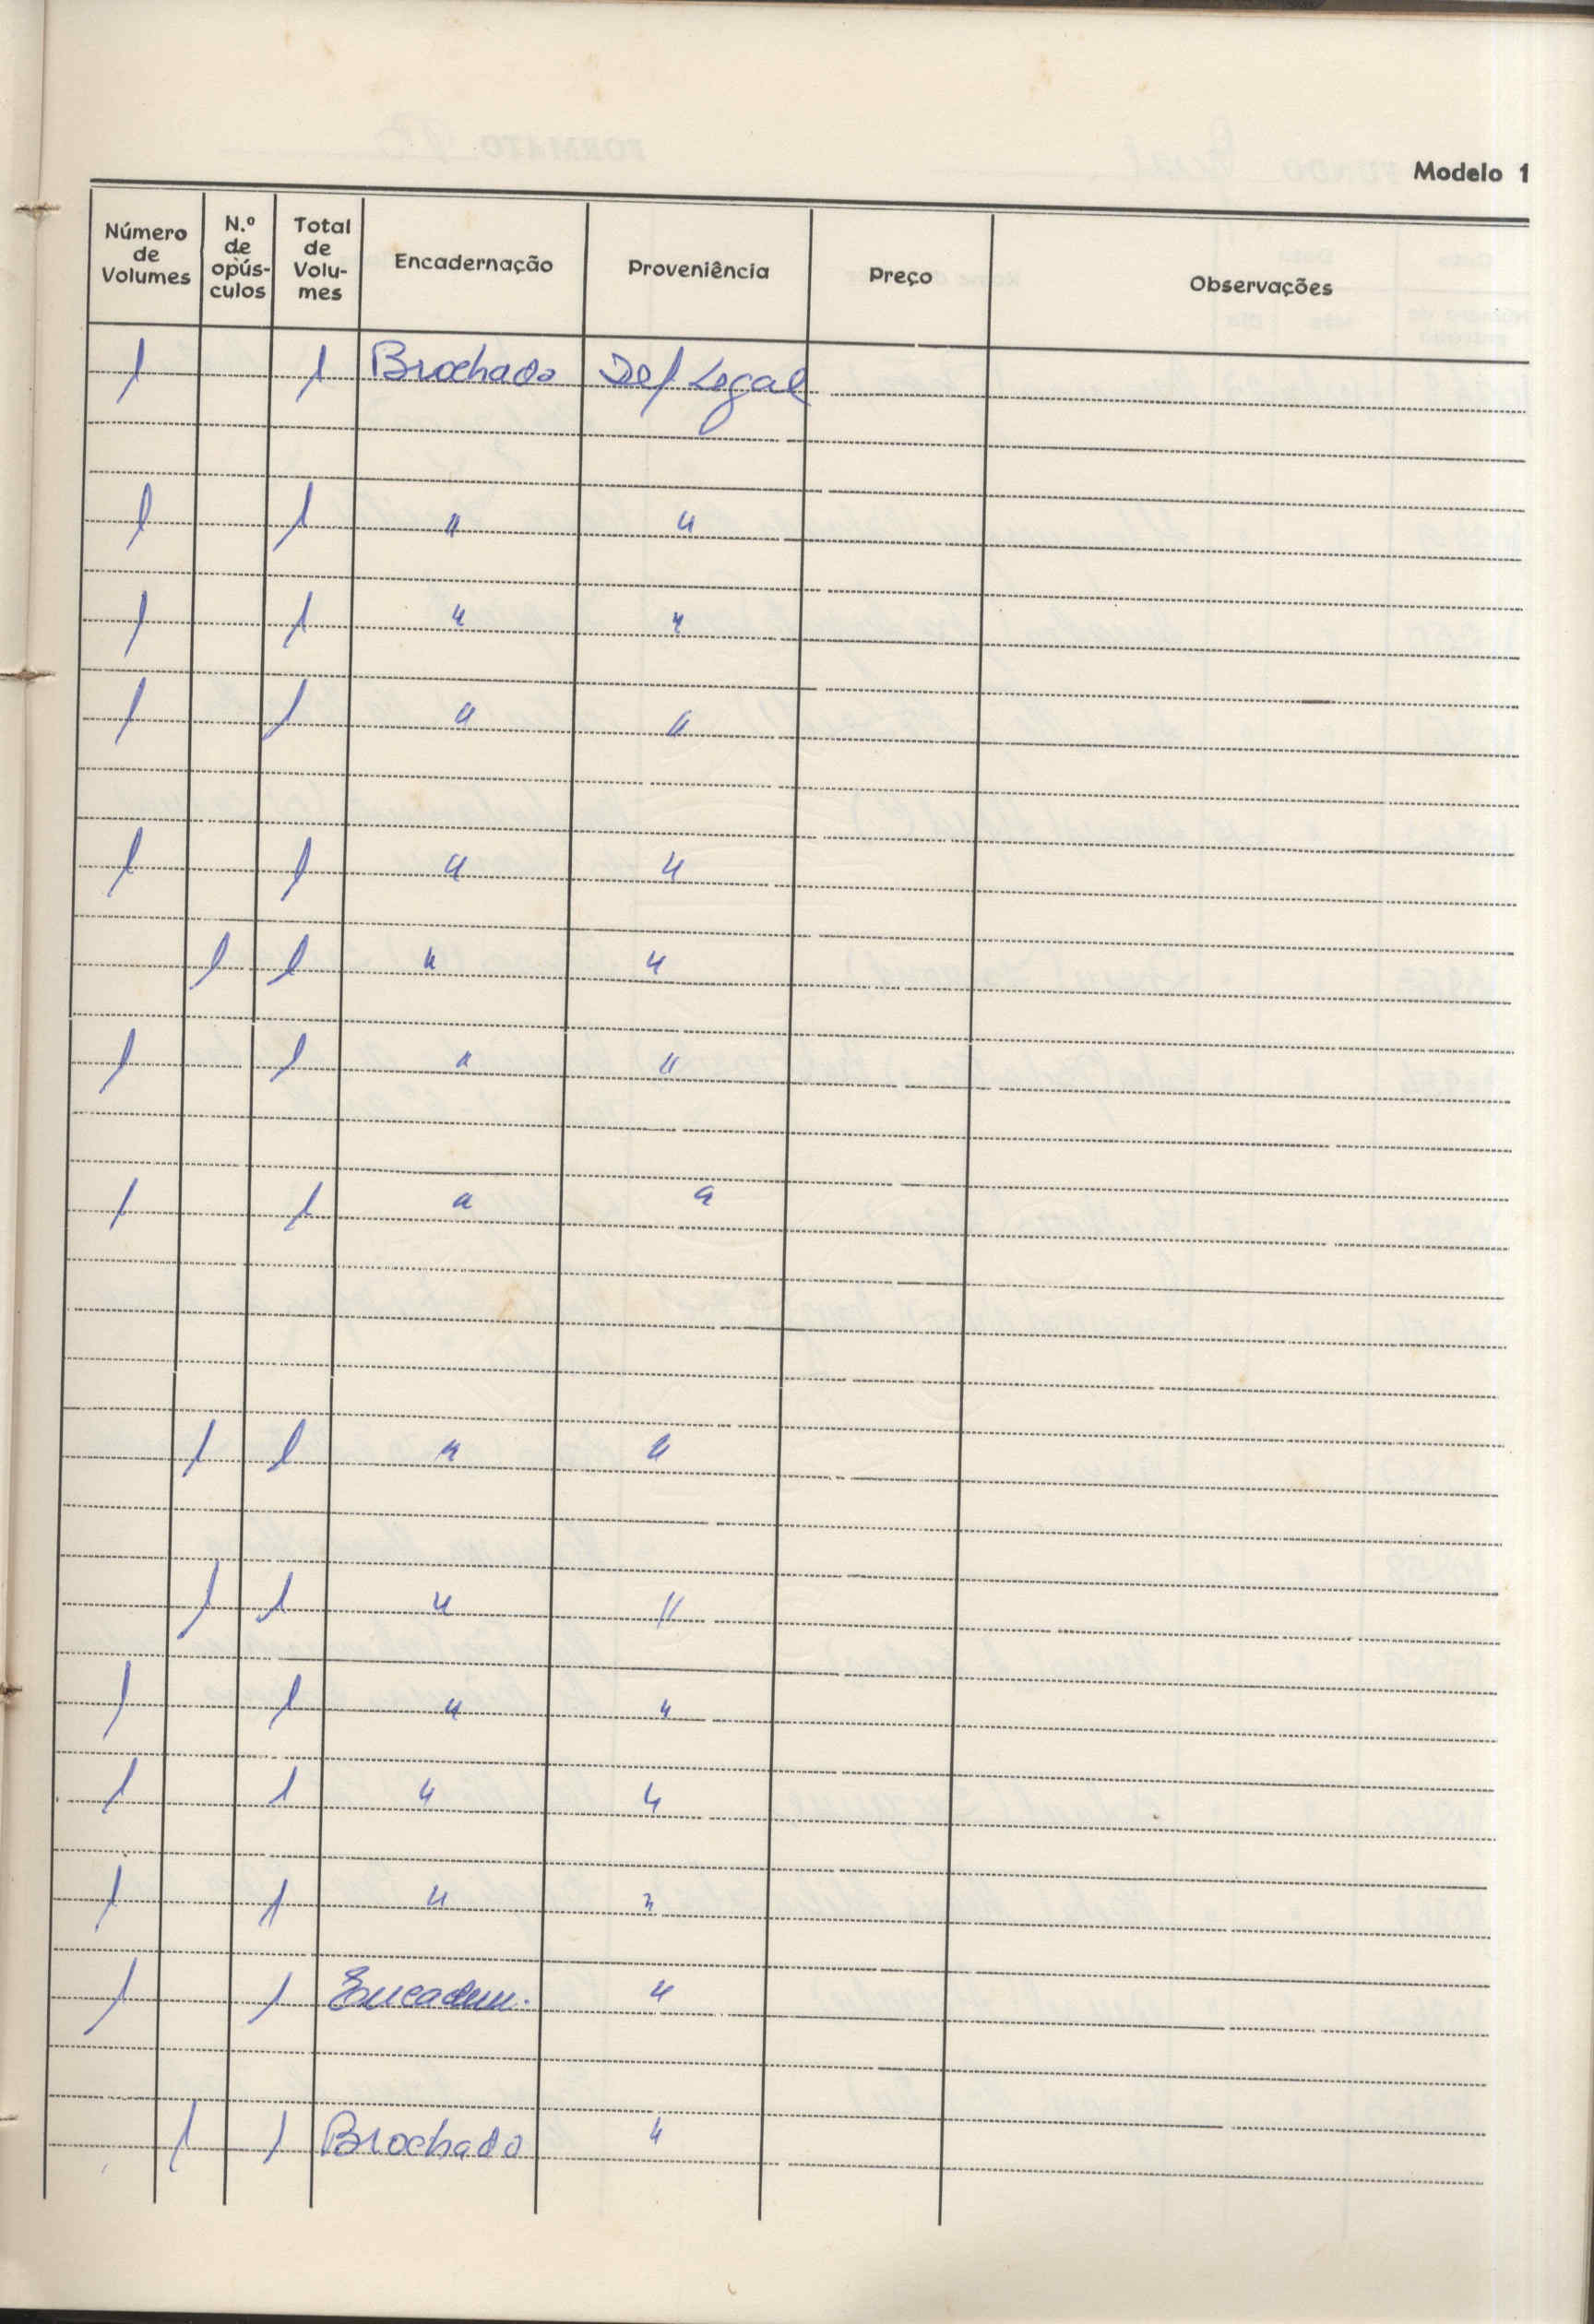 Modelo 1
Número de Volumes | N.º de opús-culos | Total de Volu-mes | Encadernação | Proveniência | Preço | Observações
1 | | 1 | Brochado | Dep Legal
1 | | 1 | " | "
1 | | 1 | " | "
1 | | 1 | " | "
1 | | 1 | " | "
| 1 | 1 | " | "
1 | | 1 | " | "
1 | | 1 | " | "
| 1 | 1 | " | "
| 1 | 1 | " | "
1 | | 1 | " | "
1 | | 1 | " | "
1 | | 1 | " | "
1 | | 1 | Encadern. | "
| 1 | 1 | Brochado | "